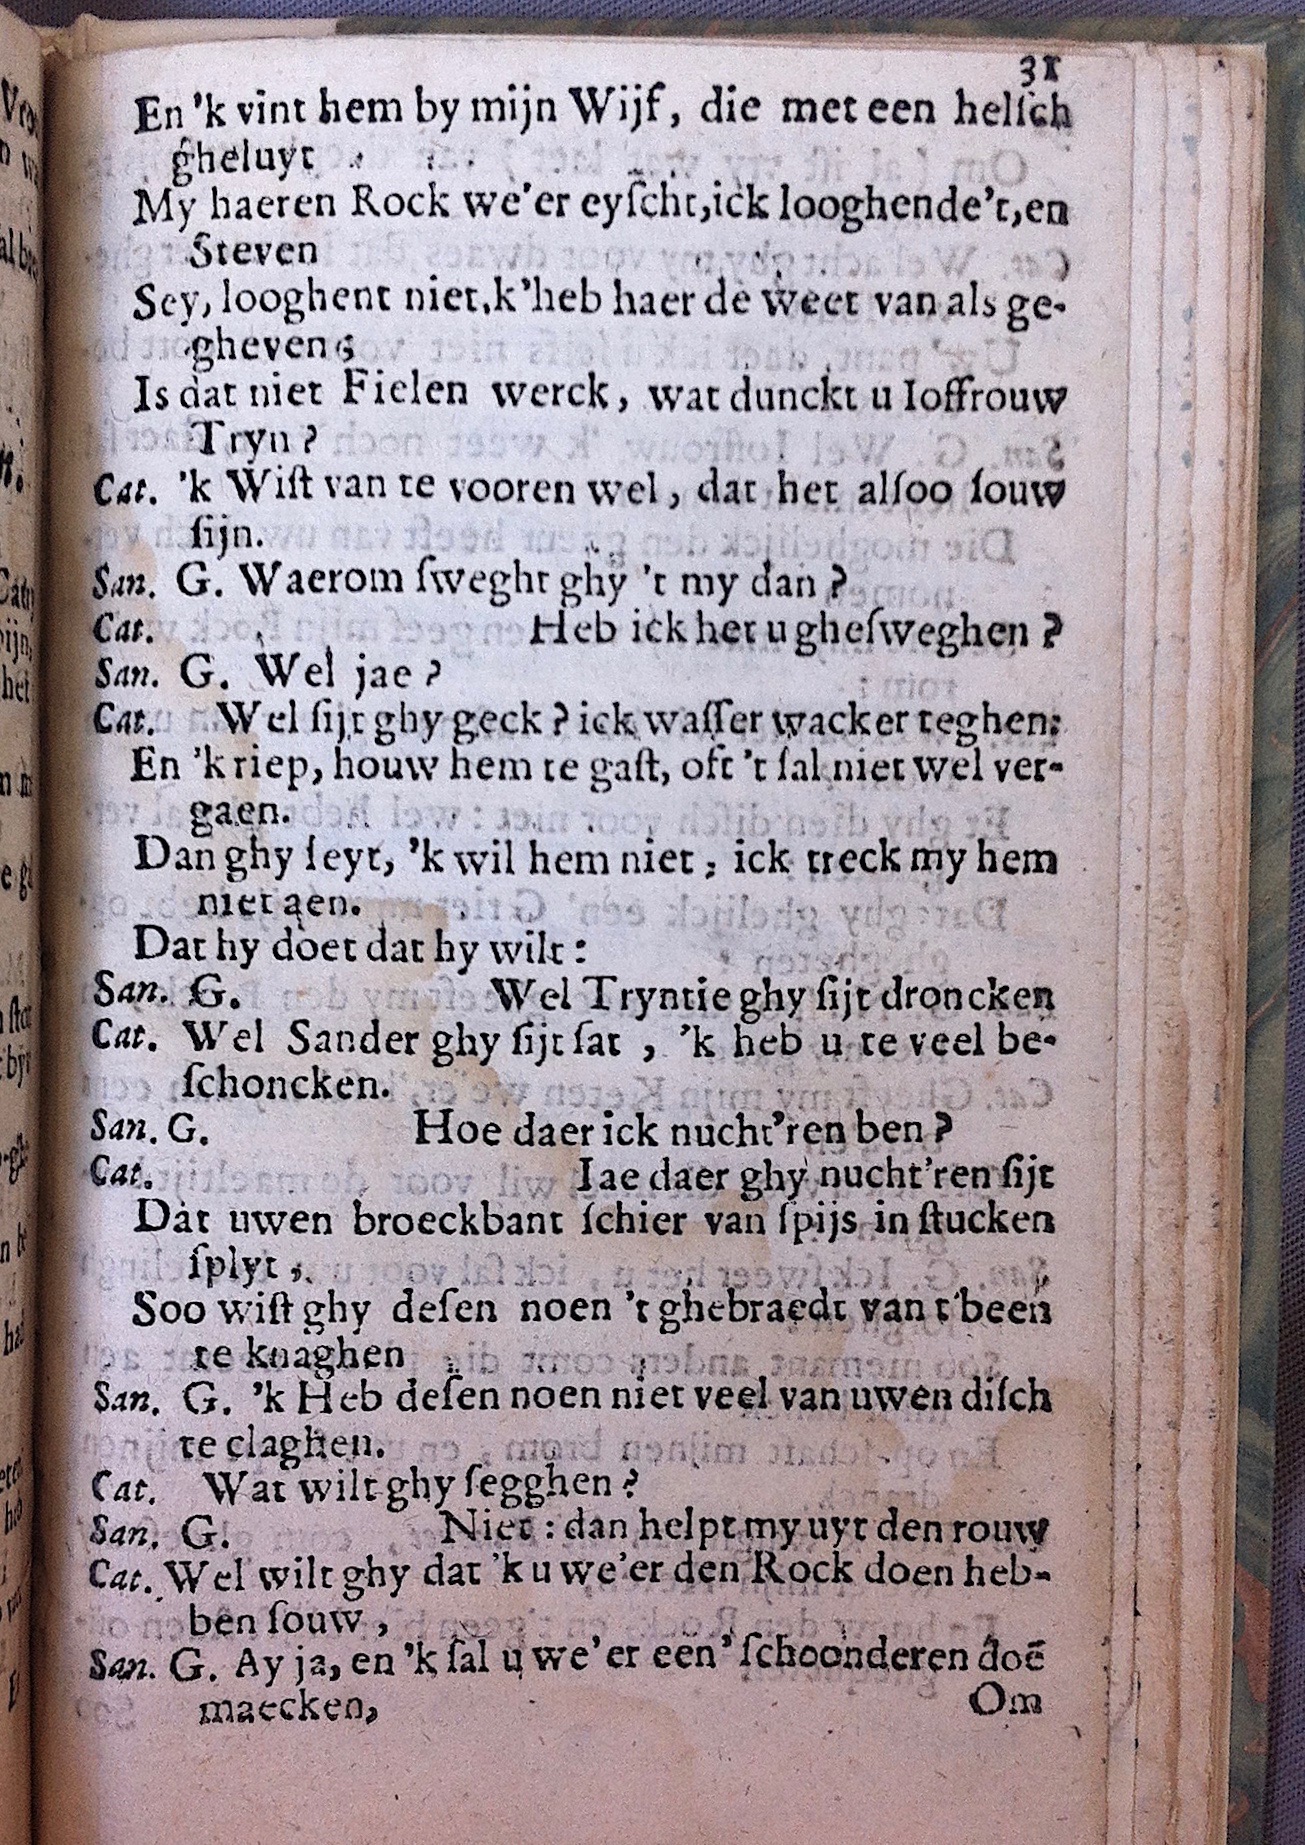 31
En 'k vint hem by mijn Wijf, die met een helſch
gheluyt
My haeren Rock we'er eyſcht, ick looghende't, en
Steven
Sey, looghent niet, k'heb haer de weet van als ge-
gheven;
Is dat niet Fielen werck, wat dunckt u Ioffrouw
Tryn?
Cat. 'k Wiſt van te vooren wel, dat het alſoo ſouw
ſijn.
San. G. Waerom ſweght ghy 't my dan?
Cat. Heb ick het u gheſweghen?
San. G. Wel jae?
Cat. Wel ſijt ghy geck? ick waſſer wacker teghen:
En 'k riep, houw hem te gaſt, oft 't ſal niet wel ver-
gaen.
Dan ghy ſeyt, 'k wil hem niet; ick treck my hem
niet aen.
Dat hy doet dat hy wilt:
San. G. Wel Tryntie ghy ſijt droncken
Cat. Wel Sander ghy ſijt ſat, 'k heb u te veel be-
ſchoncken.
San. G. Hoe daer ick nucht'ren ben?
Cat. Iae daer ghy nucht'ren ſijt
Dat uwen broeckbant ſchier van ſpijs in ſtucken
ſplyt,
Soo wiſt ghy deſen noen 't ghebraedt van t'been
te knaghen
San. G. 'k Heb deſen noen niet veel van uwen diſch
te claghen.
Cat. Wat wilt ghy ſegghen?
San. G. Niet: dan helpt my uyt den rouw
Cat. Wel wilt ghy dat 'k u we'er den Rock doen heb-
ben ſouw,
San. G. Ay ja, en 'k ſal u we'er een' ſchoonderen doē
maecken,
Om